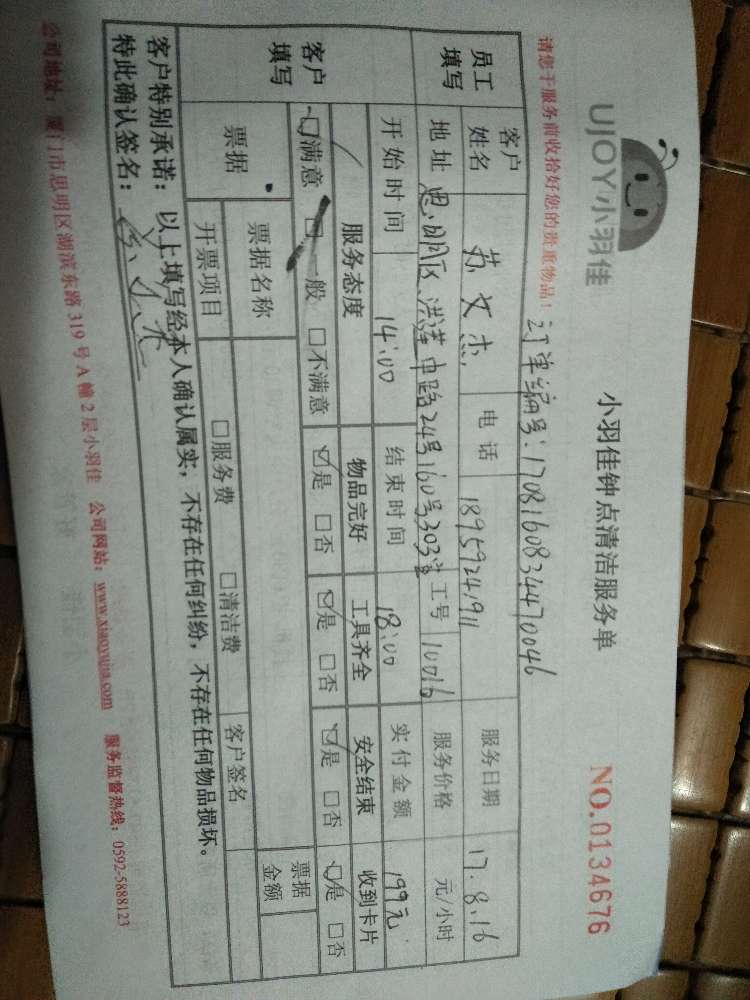 UJOY小羽佳
小羽佳钟点清洁服务单
NO.0134676
请您于服务前收拾好您的贵重物品！
订单编号：17081608344470046
员工填写 客户姓名 苏文杰 电话 18959241911 服务日期 17.8.16
地址 思明区洪莲中路24号160号303室 工号 10016 服务价格 元/小时
开始时间 14:00 结束时间 18:00 实付金额 199元
客户填写 服务态度 物品完好 工具齐全 安全结束 收到卡片
☑满意 □一般 □不满意 ☑是 □否 ☑是 □否 ☑是 □否 ☑是 □否
票据 票据名称 票据金额
开票项目 □服务费 □清洁费 客户签名
客户特别承诺：以上填写经本人确认属实，不存在任何纠纷，不存在任何物品损坏。
特此确认签名：
公司地址：厦门市思明区湖滨东路319号A幢2层小羽佳 公司网站：www.xiaoyujia.com 服务监督热线：0592-5888123